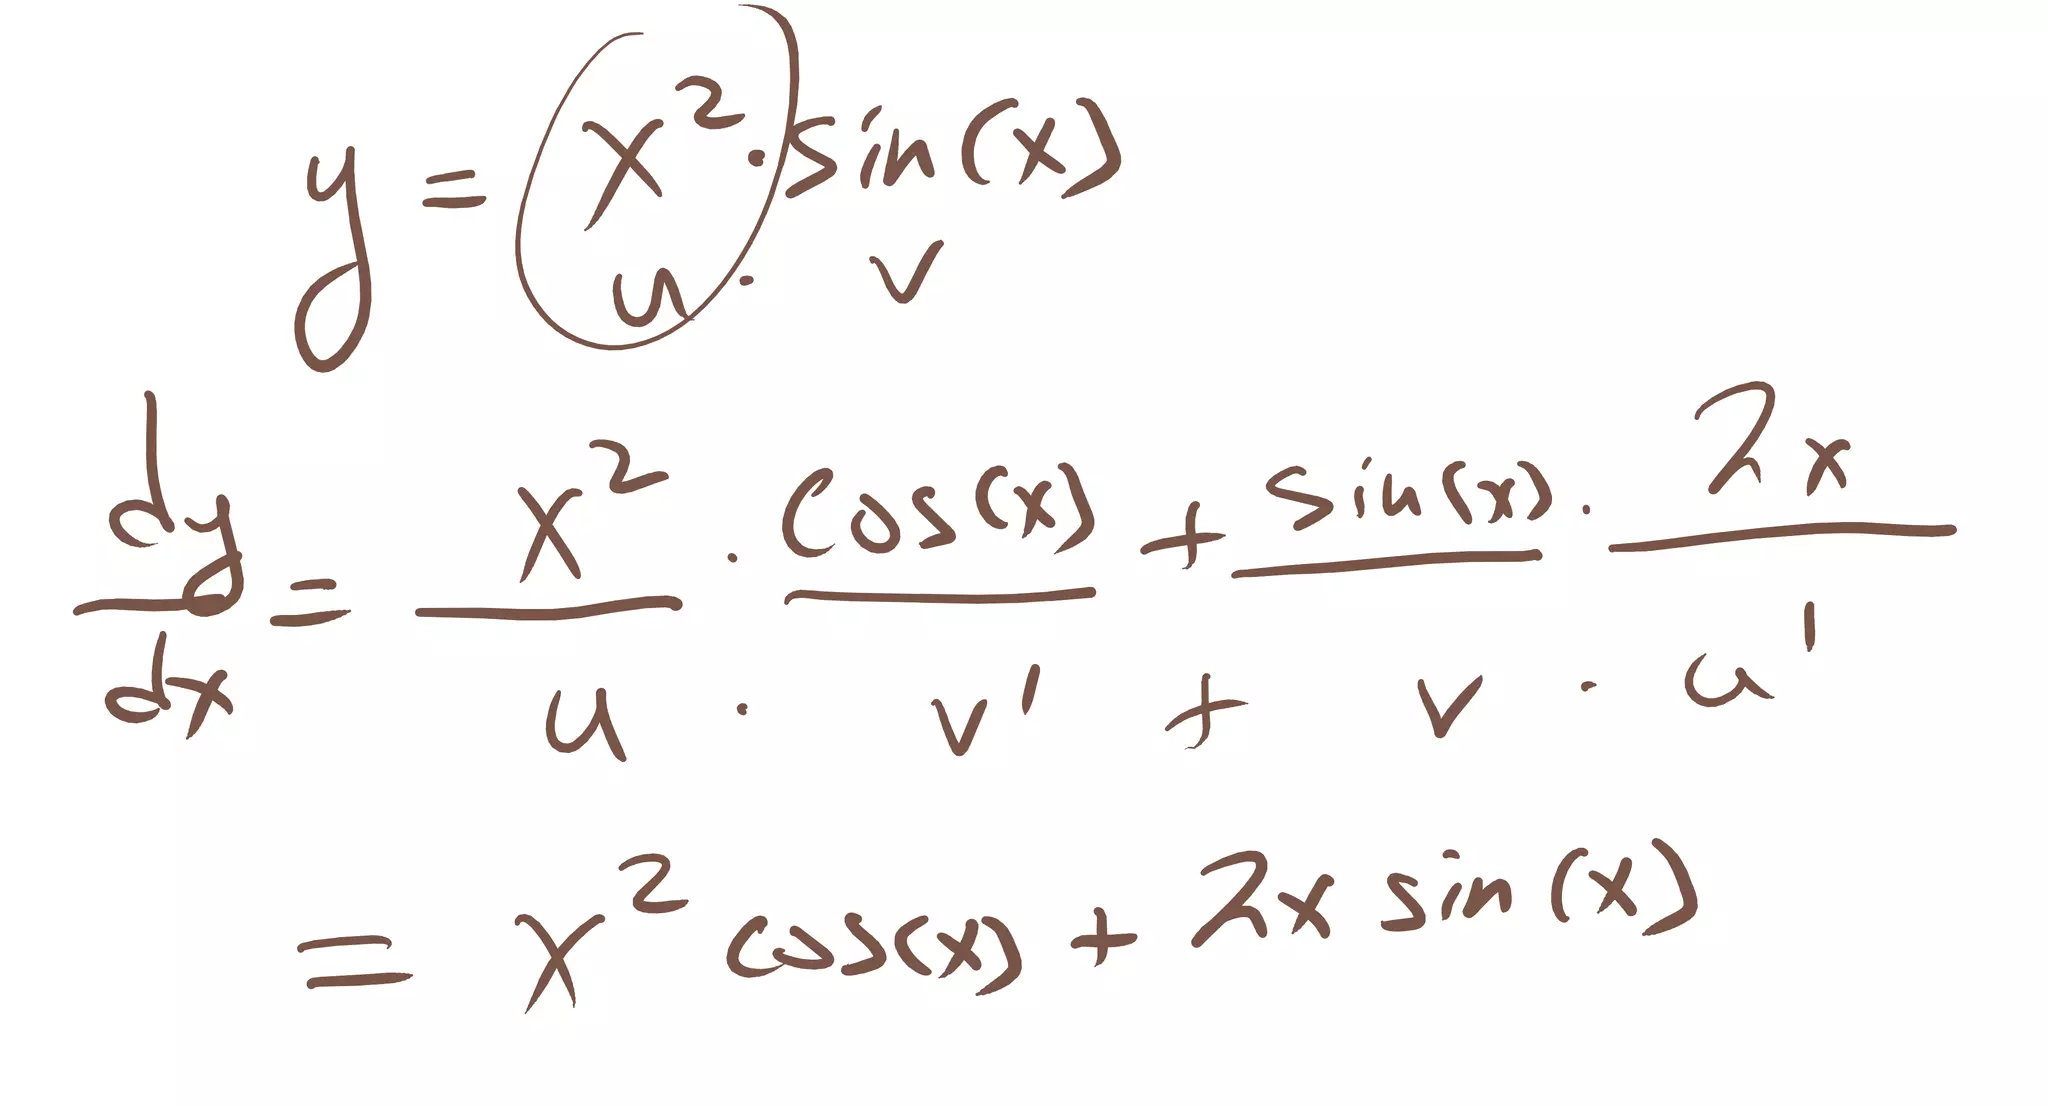 y = x² · sin(x)
u · v
dy/dx = x² · cos(x) + sin(x) · 2x
u · v' + v · u'
= x² cos(x) + 2x sin(x)